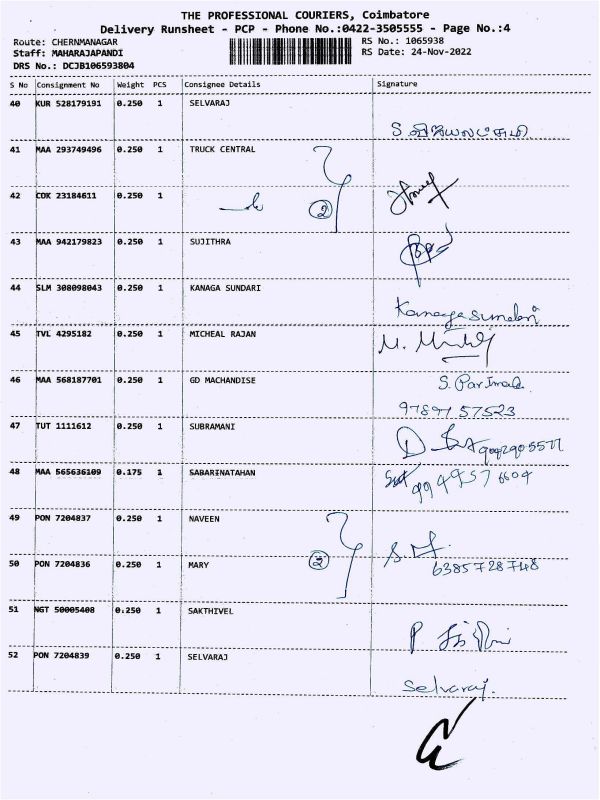 THE PROFESSIONAL COURIERS, Coimbatore
Delivery Runsheet - PCP - Phone No.:0422-3505555 - Page No.:4
Route: CHERNMANAGAR RS No.: 1065938
Staff: MAHARAJAPANDI RS Date: 24-Nov-2022
DRS No.: DCJB106593804
S No Consignment No Weight PCS Consignee Details Signature
40 KUR 528179191 0.250 1 SELVARAJ
S.
41 MAA 293749496 0.250 1 TRUCK CENTRAL
42 COK 23184611 0.250 1 ②
43 MAA 942179823 0.250 1 SUJITHRA
44 SLM 308098043 0.250 1 KANAGA SUNDARI
Kanaga sundari
45 TVL 4295182 0.250 1 MICHEAL RAJAN
46 MAA 568187701 0.250 1 GD MACHANDISE
9789157523
47 TUT 1111612 0.250 1 SUBRAMANI
48 MAA 565636109 0.175 1 SABARINATHAN
9944576604
49 PON 7204837 0.250 1 NAVEEN
50 PON 7204836 0.250 1 MARY ②
6385728748
51 NGT 50005408 0.250 1 SAKTHIVEL
52 PON 7204839 0.250 1 SELVARAJ
Selvaraj.